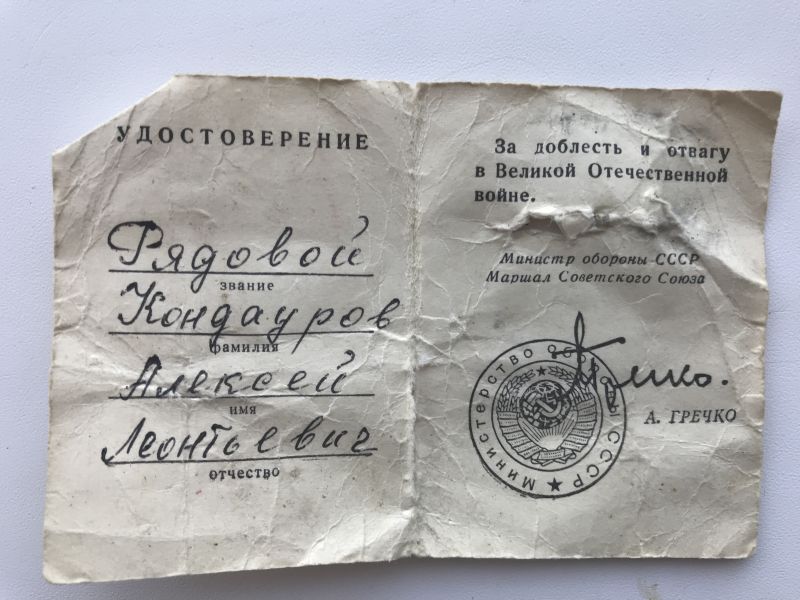 УДОСТОВЕРЕНИЕ
Рядовой
звание
Кондауров
фамилия
Алексей
имя
Леонтьевич
отчество
За доблесть и отвагу
в Великой Отечественной
войне.
Министр обороны СССР
Маршал Советского Союза
Гречко.
А. ГРЕЧКО
МИНИСТЕРСТВО ОБОРОНЫ СССР